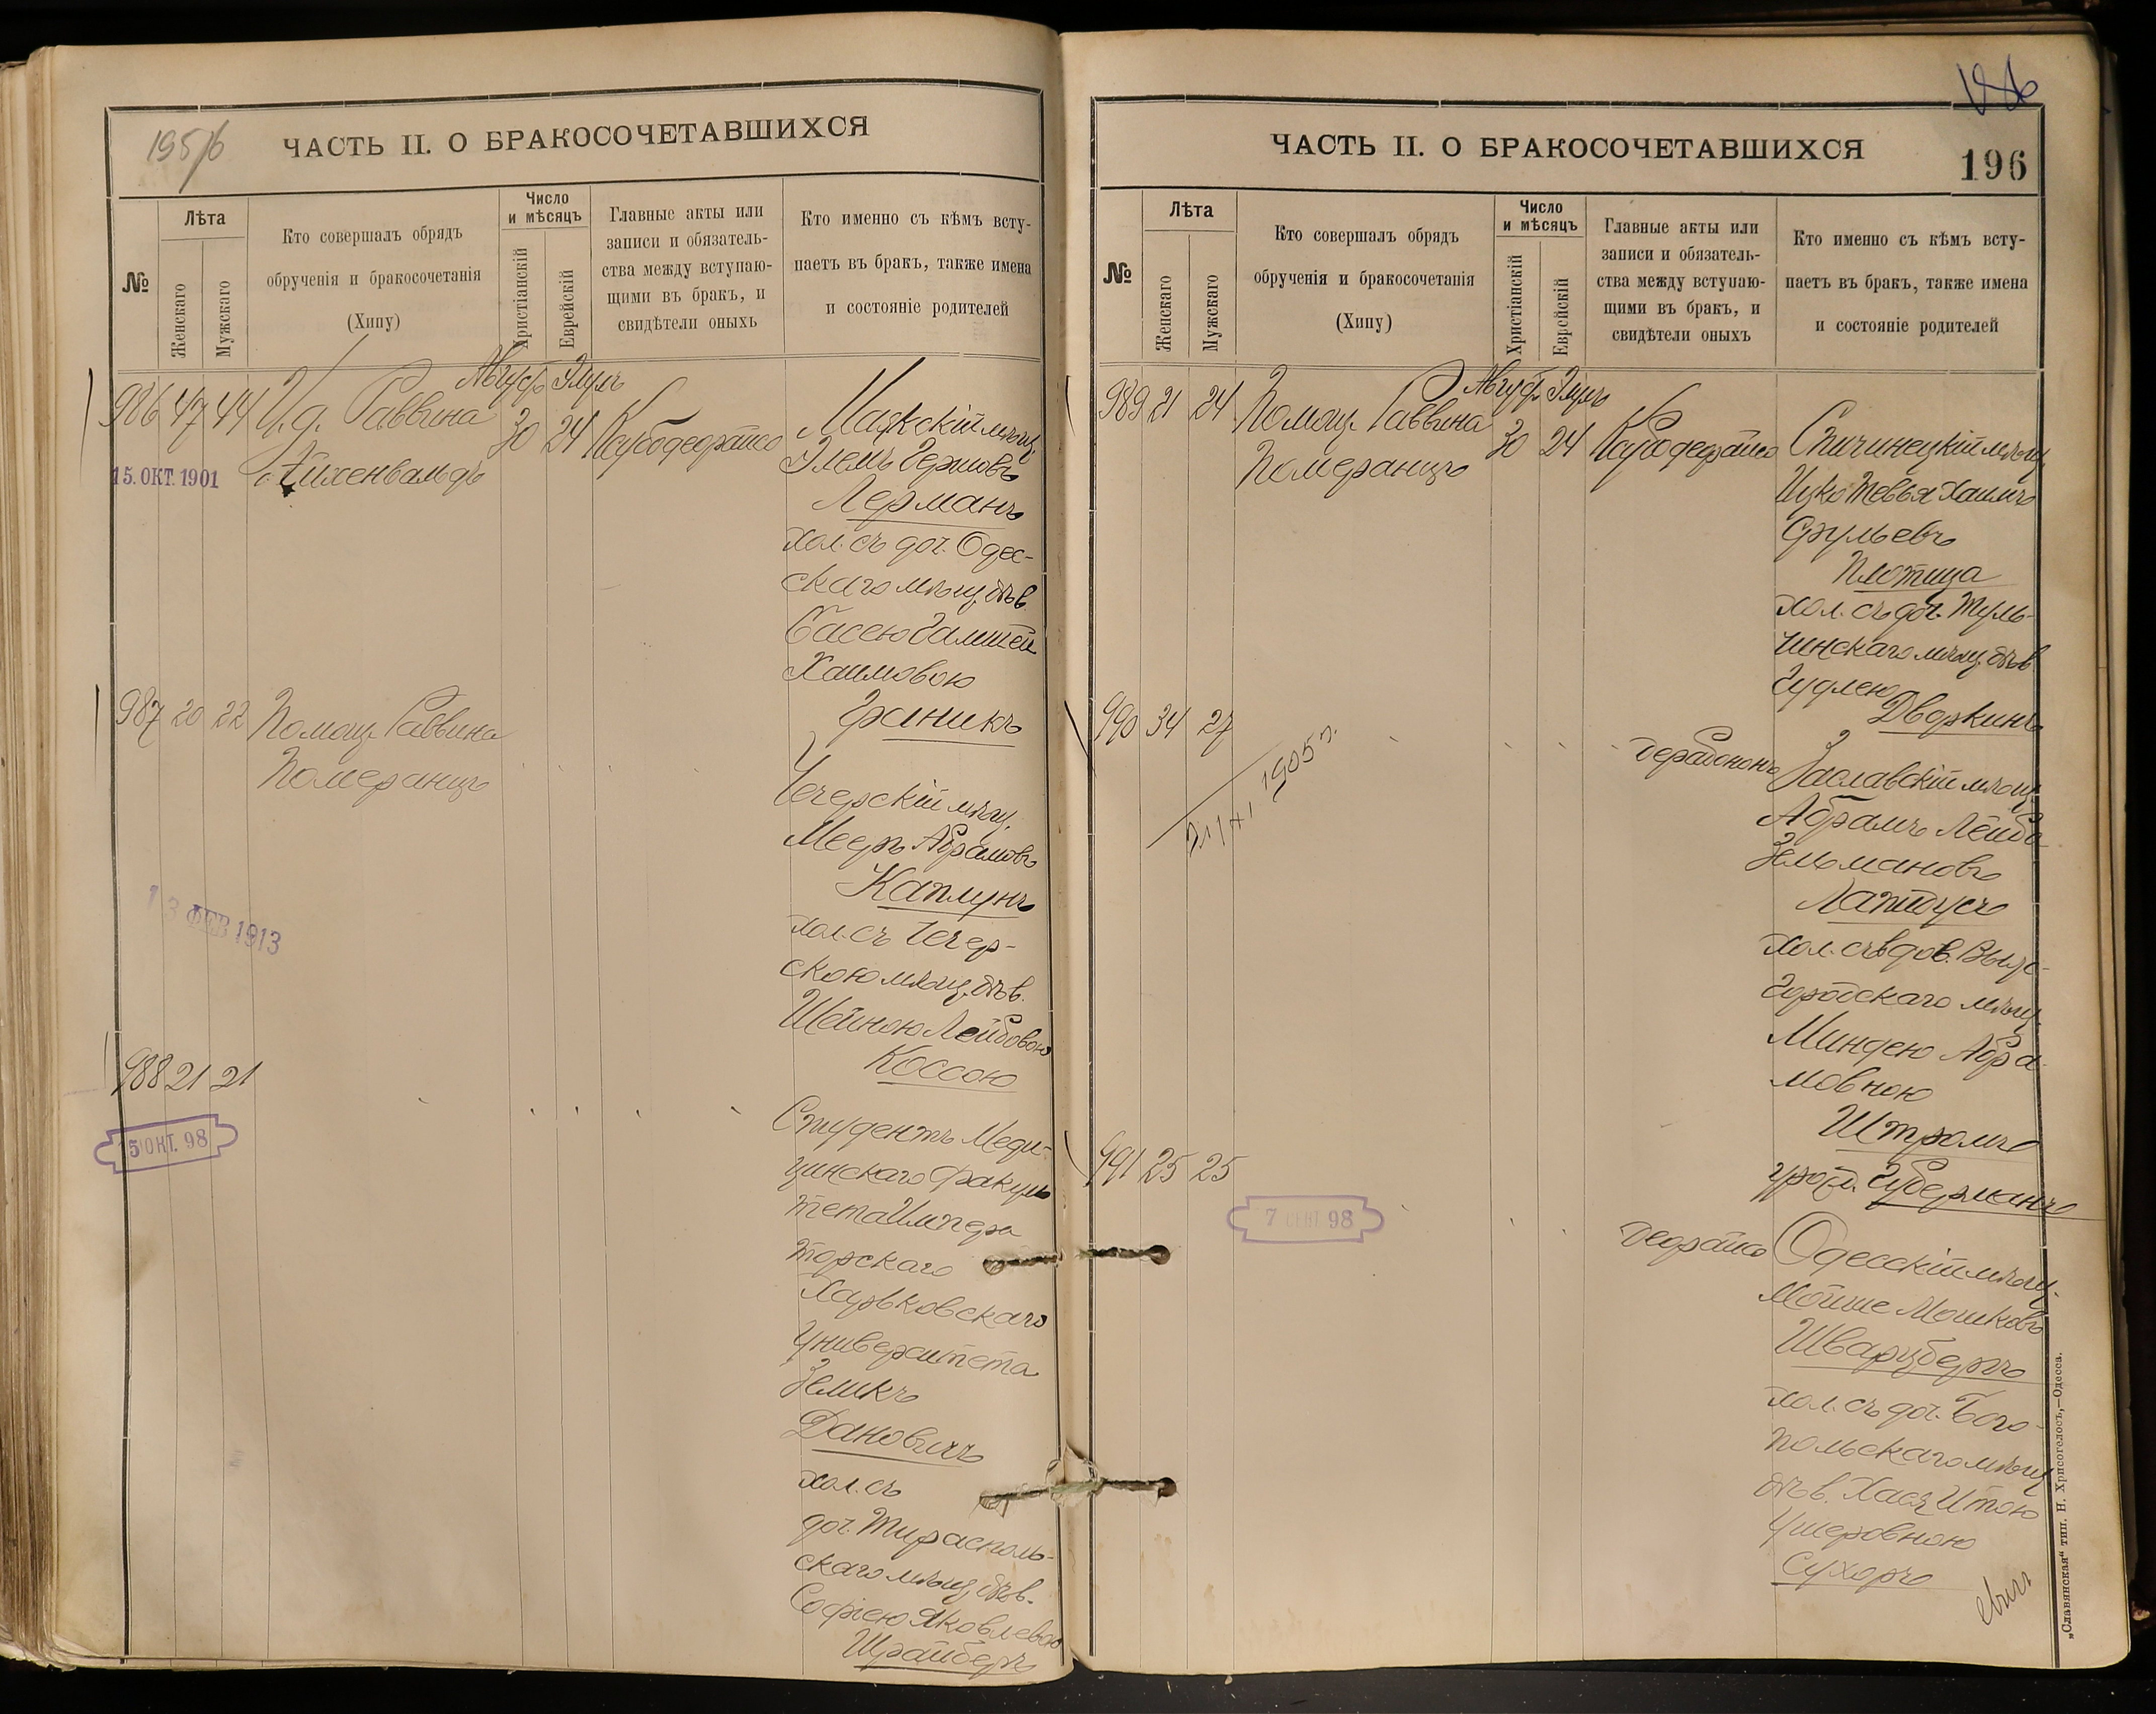 195/6
ЧАСТЬ II. О БРАКОСОЧЕТАВШИХСЯ
№
Лѣта
Женскаго
Мужскаго
Кто совершалъ обрядъ
обрученія и бракосочетанія
(Хипу)
Число
и мѣсяцъ
Христіанскій
Еврейскій
Главные акты или
записи и обязатель-
ства между вступаю-
щими въ бракъ, и
свидѣтели оныхъ
Кто именно съ кѣмъ всту-
паетъ въ бракъ, также имена
и состояніе родителей
986 47 44 И.д. Раввина
Айхенвальдъ
15. ОКТ. 1901
Август. Элулъ
30 24
Маякскій мѣщ.
Элемъ Гершовъ
Лерманъ
хол. съ доч. Одес-
скаго мѣщ. дѣв.
Басею
Хаимовою
Граникъ
987 20 22 Помощ. Раввина
Померанцъ
13 ФЕВ 1913
Чечерскій мѣщ.
Мееръ Абрамовъ
Каплунъ
хол. съ Чечер-
скою мѣщ. дѣв.
Шейною Лейбовою
Коссою
988 21 21
5 ОКТ. 98
Студентъ Меди-
цинскаго Факуль
тета Импера
торскаго
Харьковскаго
Университета
Зеликъ
Дановичъ
хол. съ
доч. Тирасполь-
скаго мѣщ. дѣв.
Софіею Яковлевою
Шрайберъ
ЧАСТЬ II. О БРАКОСОЧЕТАВШИХСЯ
196
№
Лѣта
Женскаго
Мужскаго
Кто совершалъ обрядъ
обрученія и бракосочетанія
(Хипу)
Число
и мѣсяцъ
Христіанскій
Еврейскій
Главные акты или
записи и обязатель-
ства между вступаю-
щими въ бракъ, и
свидѣтели оныхъ
Кто именно съ кѣмъ всту-
паетъ въ бракъ, также имена
и состояніе родителей
989 21 24 Помощ. Раввина
Померанцъ
Август. Элулъ
30 24
Спичинецкій мѣщ.
Ицко Тевья Хаимъ
Срульевъ
Плотица
хол. съ доч. Туль-
чинскаго мѣщ. дѣв
Гудлею
Дворкинъ
990 34 27
1905 г.
Заславскій мѣщ.
Абрамъ Лейба
Зельмановъ
Лапидусъ
хол. съ вдов. Выше-
городскаго мѣщ.
Миндею Абра-
мовною
Штромъ
урожд. Губерманъ
991 25 25
7 СЕНТ 98
Одесскій мѣщ.
Мойше Мошковъ
Шварцбергъ
хол. съ доч. Бого-
польскаго мѣщ.
дѣв. Хаею Итою
Ушеровною
Сухоръ
„Славянская" тип. Н. Хрисогелосъ,—Одесса.